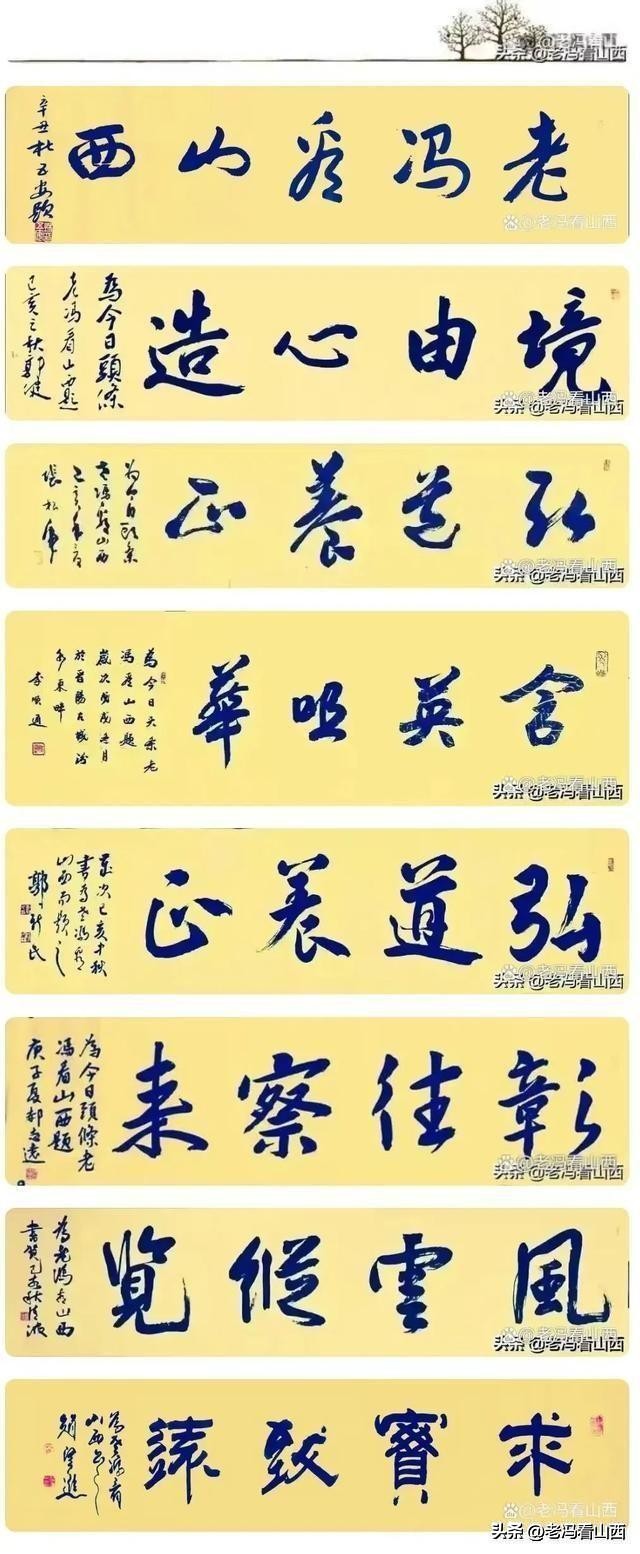 头条 @老冯看山西
老冯看山西
辛丑杜五安题
@老冯看山西
境由心造
为今日頭條
老冯看山西题
己亥之秋郭健
头条 @老冯看山西
弘道養正
为今日头条
老冯看山西
张松
头条 @老冯看山西
含英咀華
為今日头条老
冯看山西题
歲次戊戌
於晋陽古城汾
水東畔
李順通
头条 @老冯看山西
弘道养正
歲次己亥中秋
書為老冯看
山西而题之
郭新民
头条 @老冯看山西
彰往察来
為今日頭條老
冯看山西题
庚子夏郝
头条 @老冯看山西
風雲縱览
為老冯看山西
書贺己亥秋
头条 @老冯看山西
求實致遠
為老冯看
山西
趙望進
头条 @老冯看山西